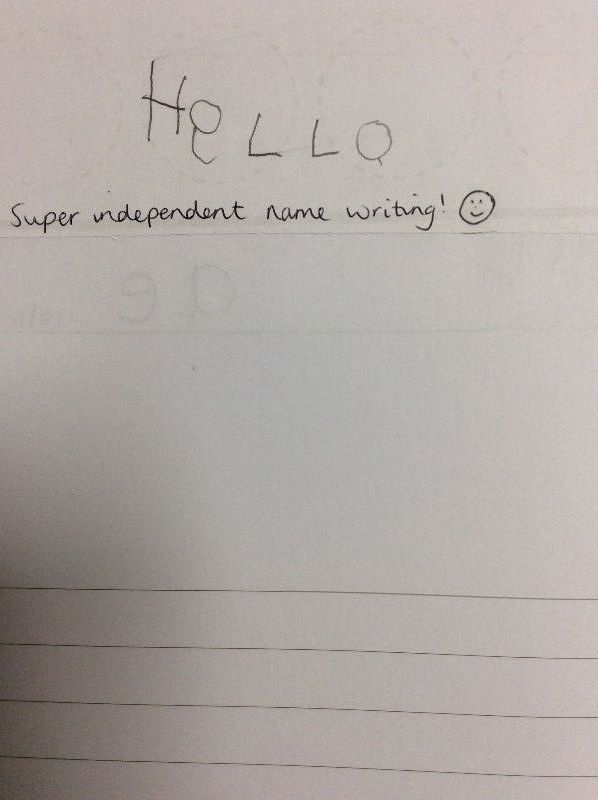 HeLLO
Super independent name writing! ☺